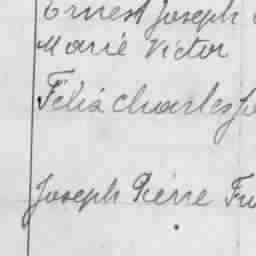 Ernest Joseph
Marie Victor
Félix Charles
Joseph Pierre